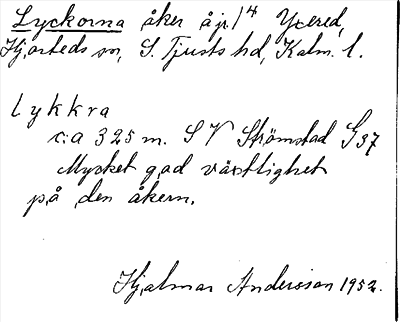 Lyckorna åker å jr 1⁴ Yxered,
Hjorteds sn, S. Tjusts hd, Kalm. l.
lykkra
c:a 325 m. SV Strömstad G37
Mycket god växtlighet
på den åkern.
Hjalmar Andersson 1952.